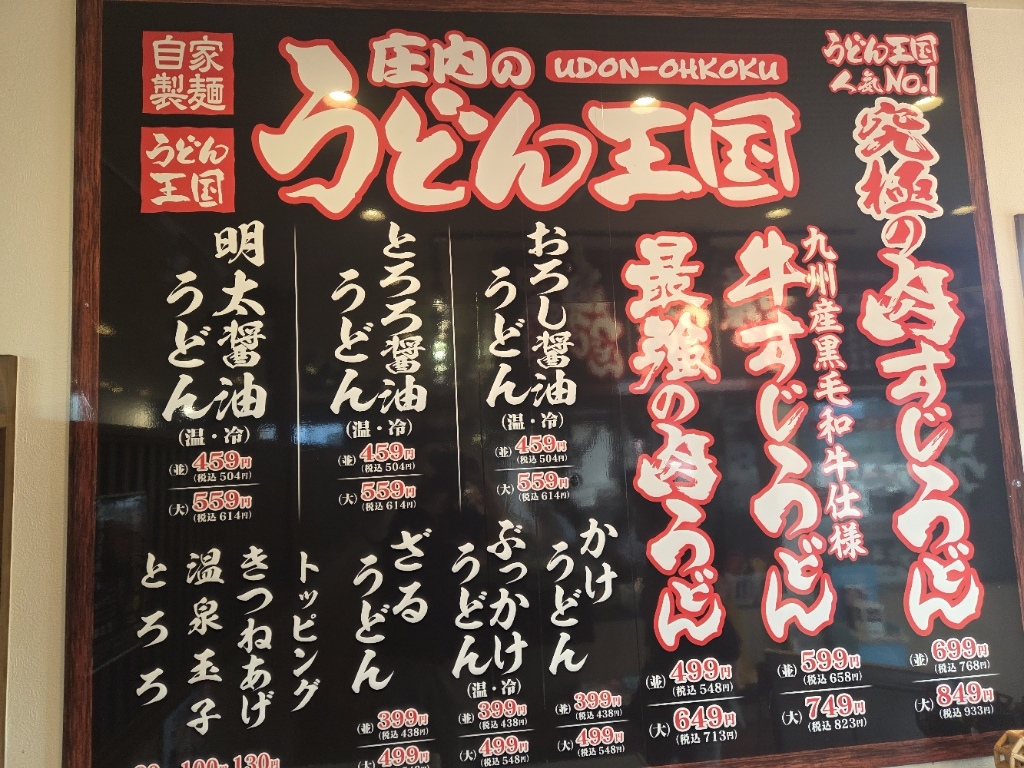 自家
製麺
うどん
王国
庄内の
UDON-OHKOKU
うどん王国
うどん王国
人気No.1
究極の肉すじうどん
(並)699円
(税込 768円)
(大)849円
(税込 933円)
九州産黒毛和牛仕様
牛すじうどん
(並)599円
(税込 658円)
(大)749円
(税込 823円)
最強の肉うどん
(並)499円
(税込 548円)
(大)649円
(税込 713円)
おろし醤油
うどん
(温・冷)
(並)459円
(税込 504円)
(大)559円
(税込 614円)
とろろ醤油
うどん
(温・冷)
(並)459円
(税込 504円)
(大)559円
(税込 614円)
明太醤油
うどん
(温・冷)
(並)459円
(税込 504円)
(大)559円
(税込 614円)
かけ
うどん
(並)399円
(税込 438円)
(大)499円
(税込 548円)
ぶっかけ
うどん
(温・冷)
(並)399円
(税込 438円)
(大)499円
(税込 548円)
ざる
うどん
(並)399円
(税込 438円)
(大)499円
トッピング
きつねあげ
130円
温泉玉子
100円
とろろ